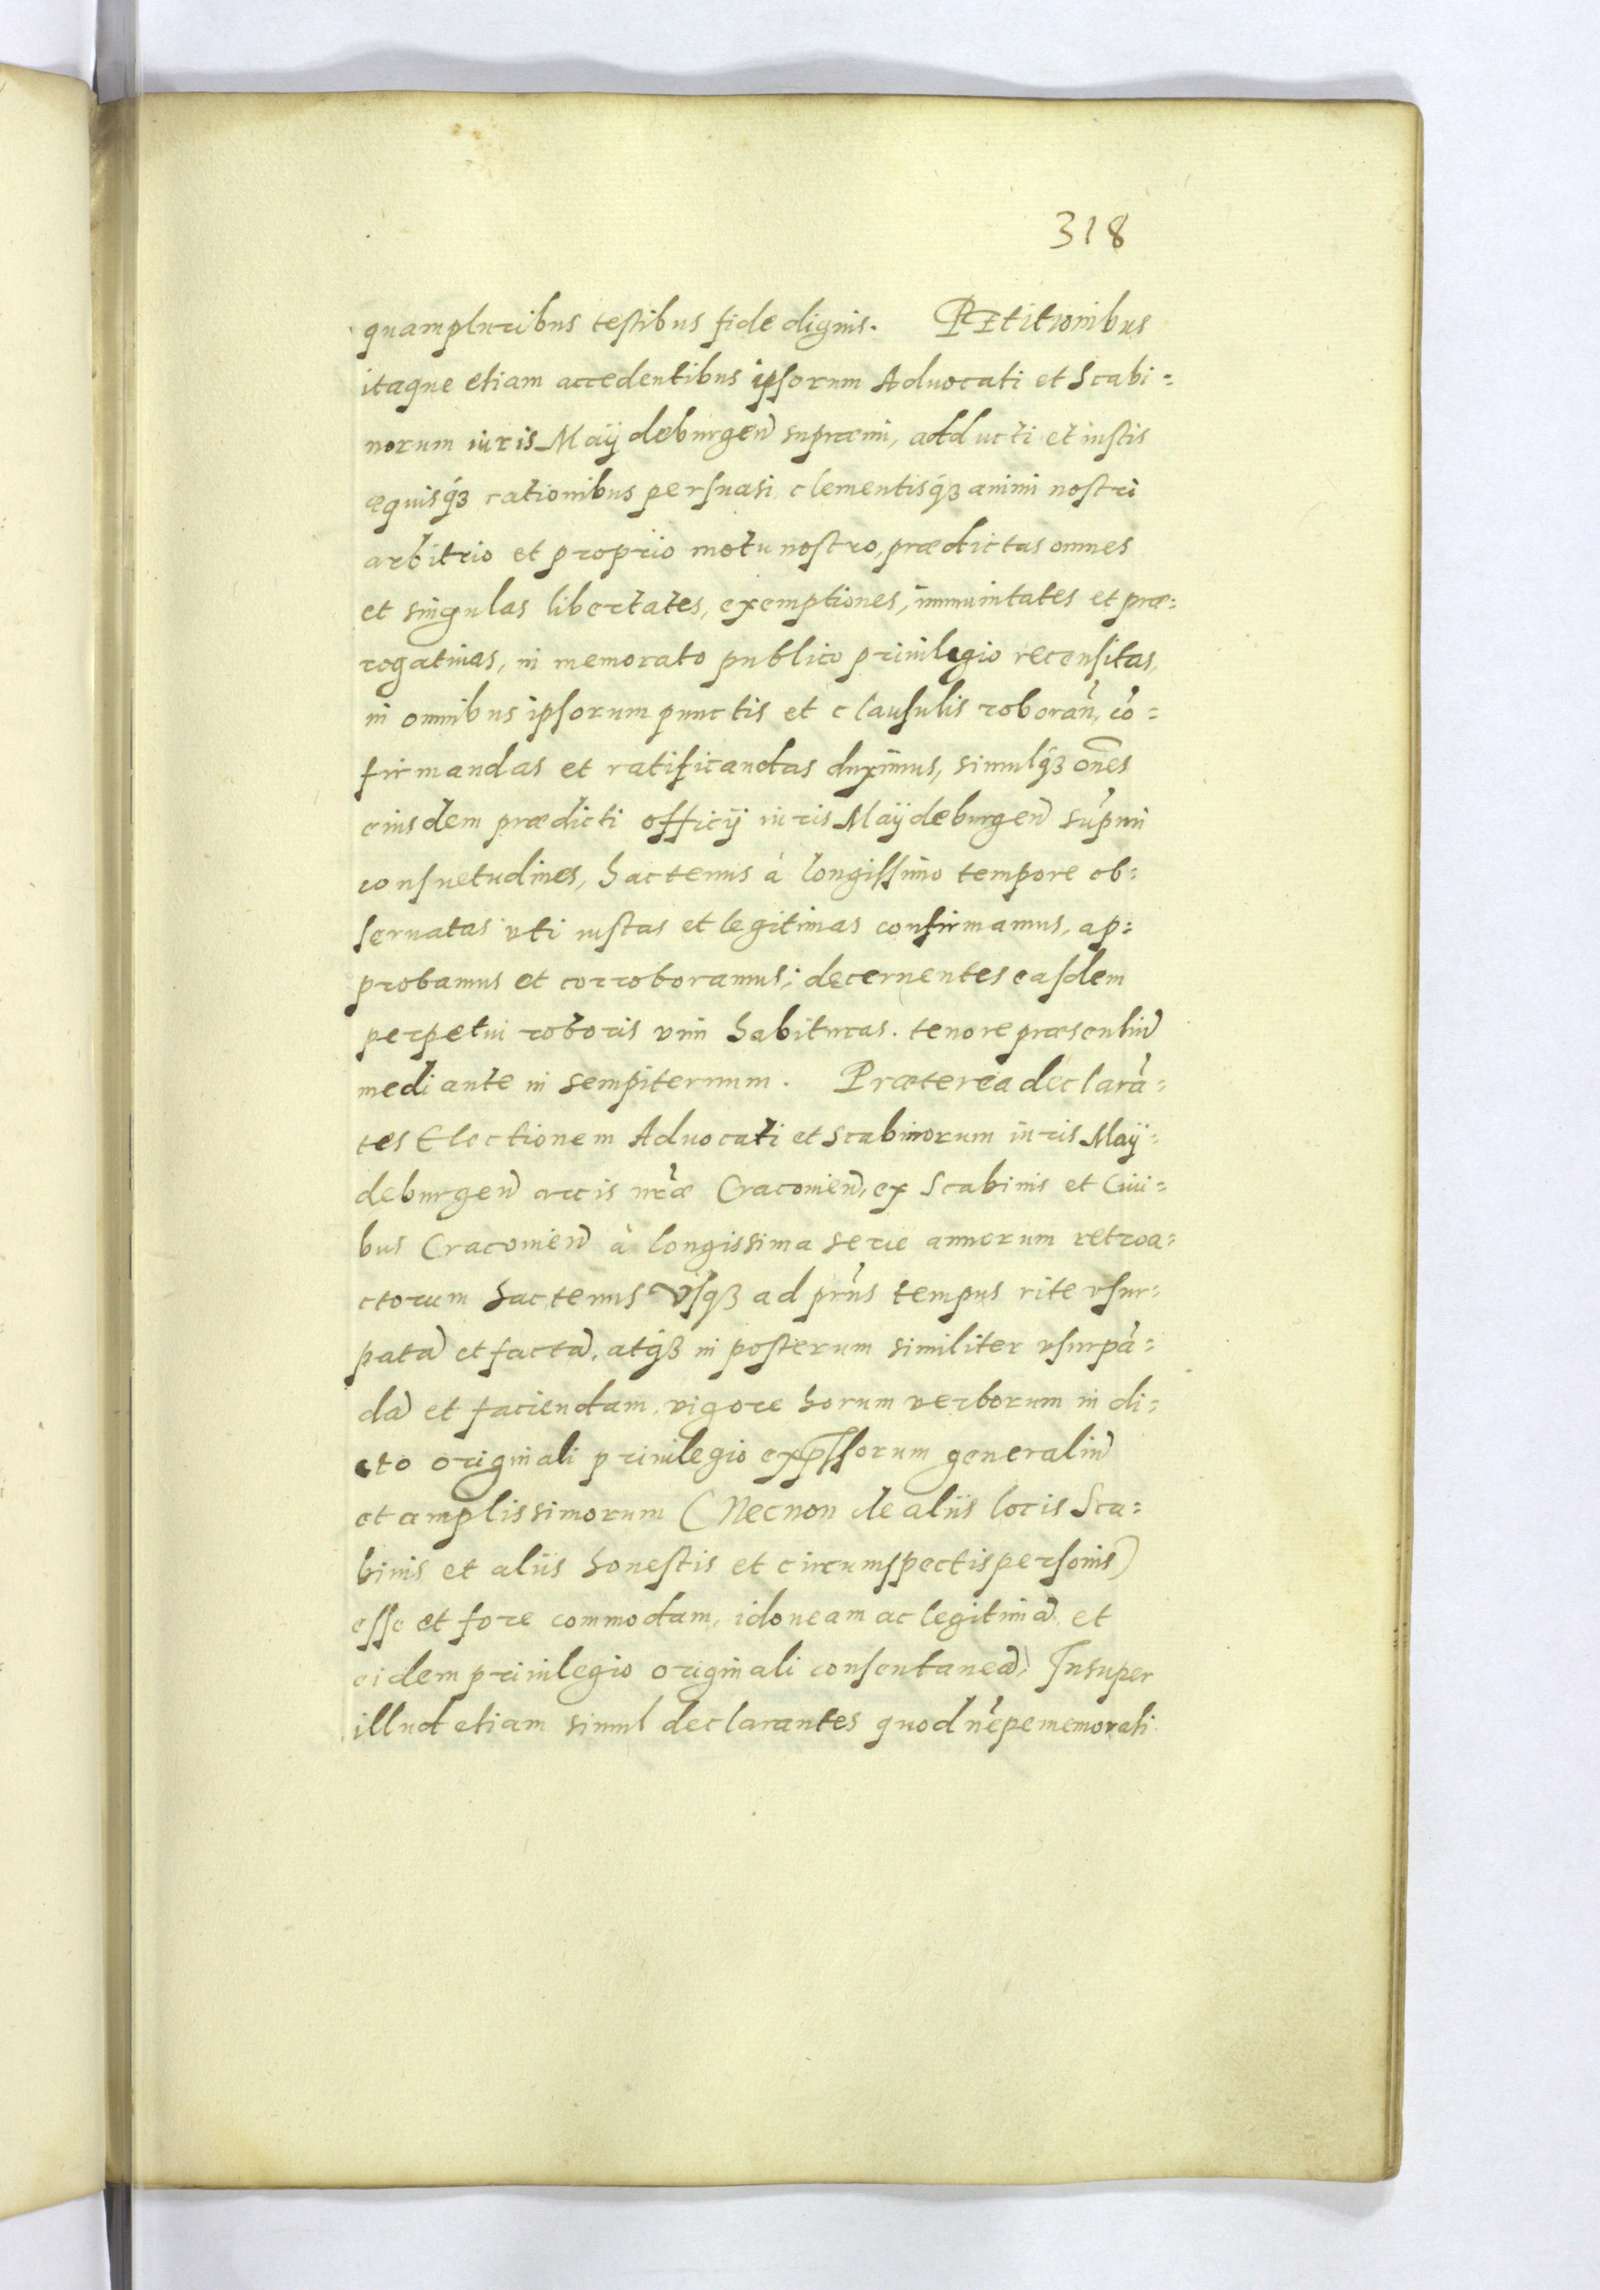 318
quampluribus testibus fide dignis. PEtitionibus
itaque etiam accedentibus ipsorum Aduocati et Scabi=
norum iuris Maÿdeburgen̄ supræmi, adducti et iustis
æquisq́ꝫ rationibus persuasi, clementisq́ꝫ animi nostri
arbitrio et proprio motu nostro, prædictas omnes
et singulas libertates, exemptiones, immunitates et præ=
rogatiuas, in memorato publico priuilegio recensitas,
in omnibus ipsorum punctis et clausulis roboran̄, cō=
firmandas et ratificandas duximus, simulq́ꝫ om̄es
eiusdem prædicti officÿ iuris Maÿdeburgen̄ sup̄mi
consuetudines, hactenus à longissimo tempore ob=
seruatas vti iustas et legitimas confirmamus, ap=
probamus et corroboramus; decernentes easdem
perpetui roboris vim habituras. tenore præsentiū
mediante in sempiternum. Præterea declarā=
tes Electionem Aduocati et Scabinorum iuris Maÿ=
deburgen̄ arcis nr̄æ Cracouien̄, ex Scabinis et Ciui=
bus Cracouien̄ à longissima serie annorum retroa=
ctorum hactenus Vsqꝫ ad prn̄s tempus rite vsur=
patā et factā, atq́ꝫ in posterum similiter vsurpā=
dā et faciendam, vigore horum verborum in di=
cto originali priuilegio exp̄ssorum generaliū
et amplissimorum (Necnon de aliis locis Sca=
binis et aliis honestis et circumspectis personis)
esse et fore commodam, idoneam ac legitimā et
eidem priuilegio originali consentaneā, Insuper
illud etiam simul declarantes quod nēpe memorati